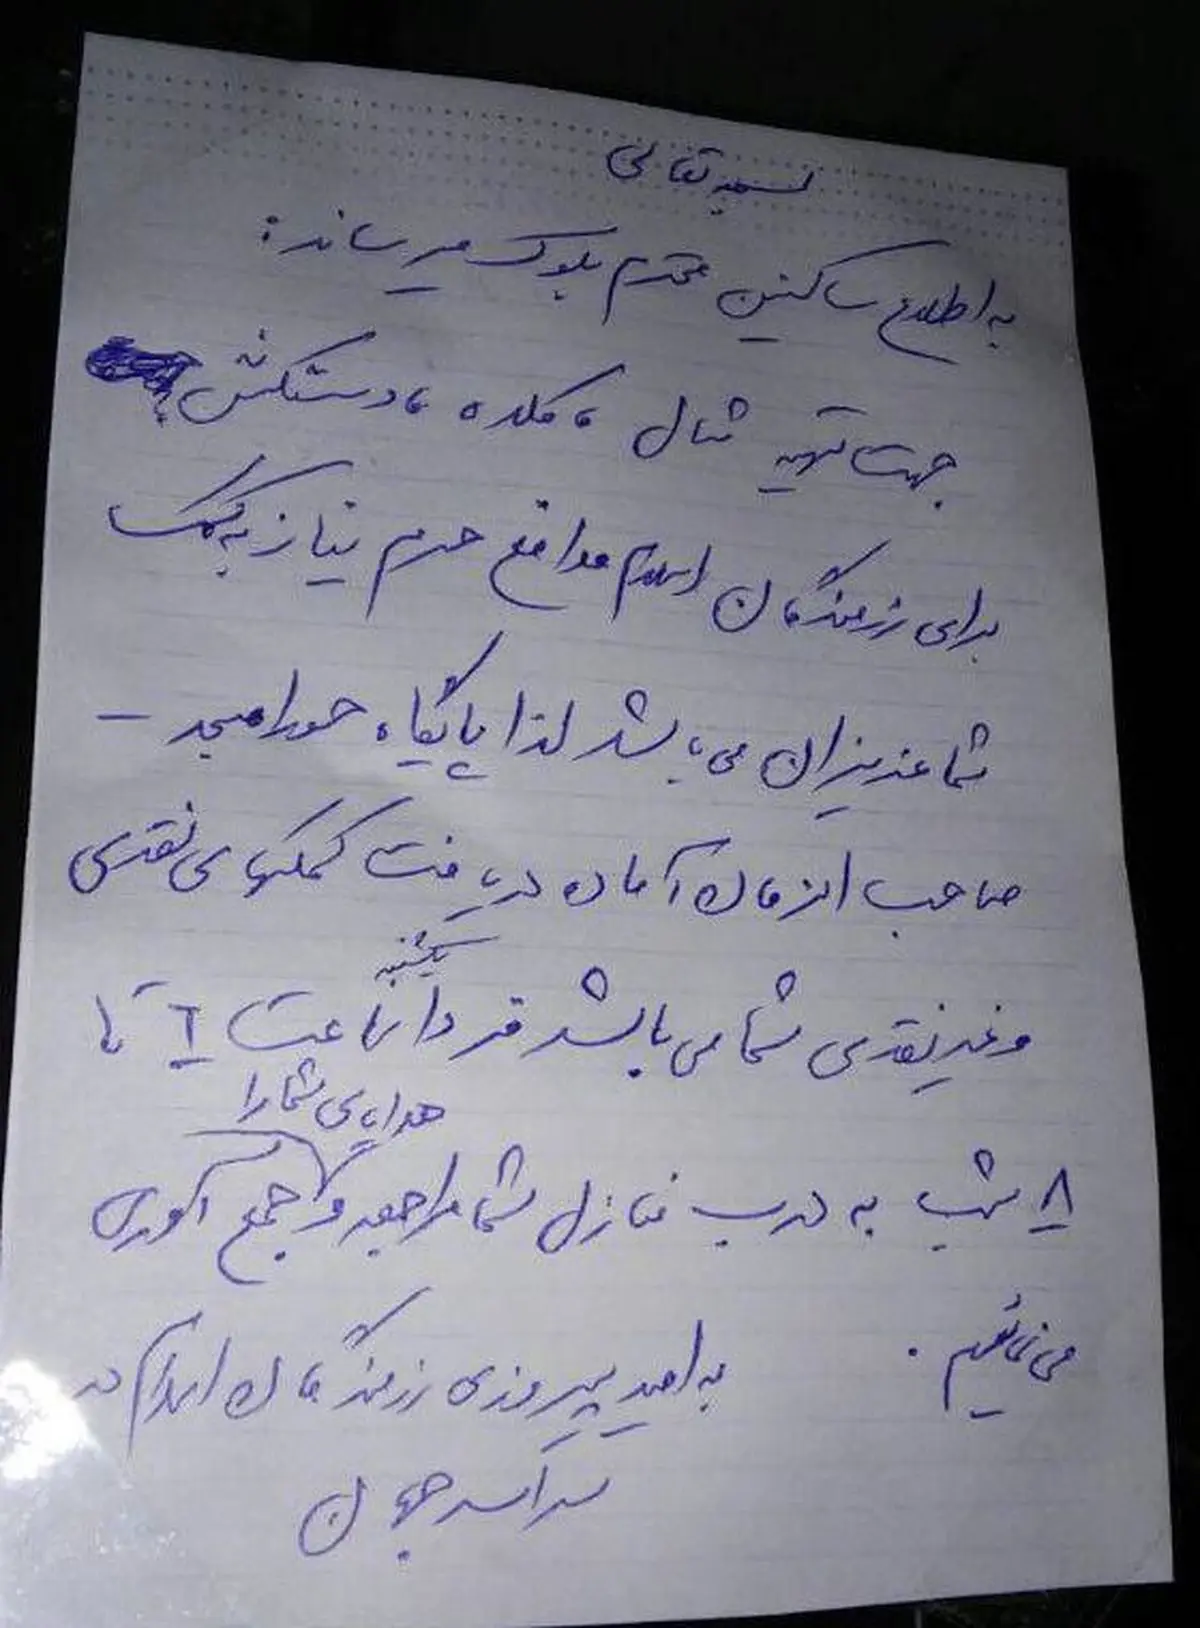 بسمه تعالی
به اطلاع ساکنین محترم بلوک میرساند:
جهت تهیه شال ، کلاه ، دستکش
برای رزمندگان اسلام مدافع حرم نیاز به کمک
شما عزیزان می باشد لذا پایگاه
صاحب الزمان آماده دریافت کمکهای نقدی
یکشنبه
و غیرنقدی شما می باشد فردا ساعت ٦ تا
هدایای شما را
٨ شب به درب منازل شما مراجعه و جمع آوری
می نمائیم .
به امید پیروزی رزمندگان اسلام در
سراسر جهان